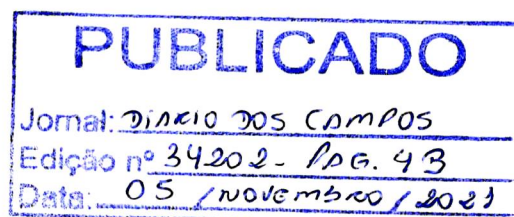 PUBLICADO
Jornal: DIARIO DOS CAMPOS
Edição nº 34202 - PAG. 4B
Data: 05 / NOVEMBRO / 2021